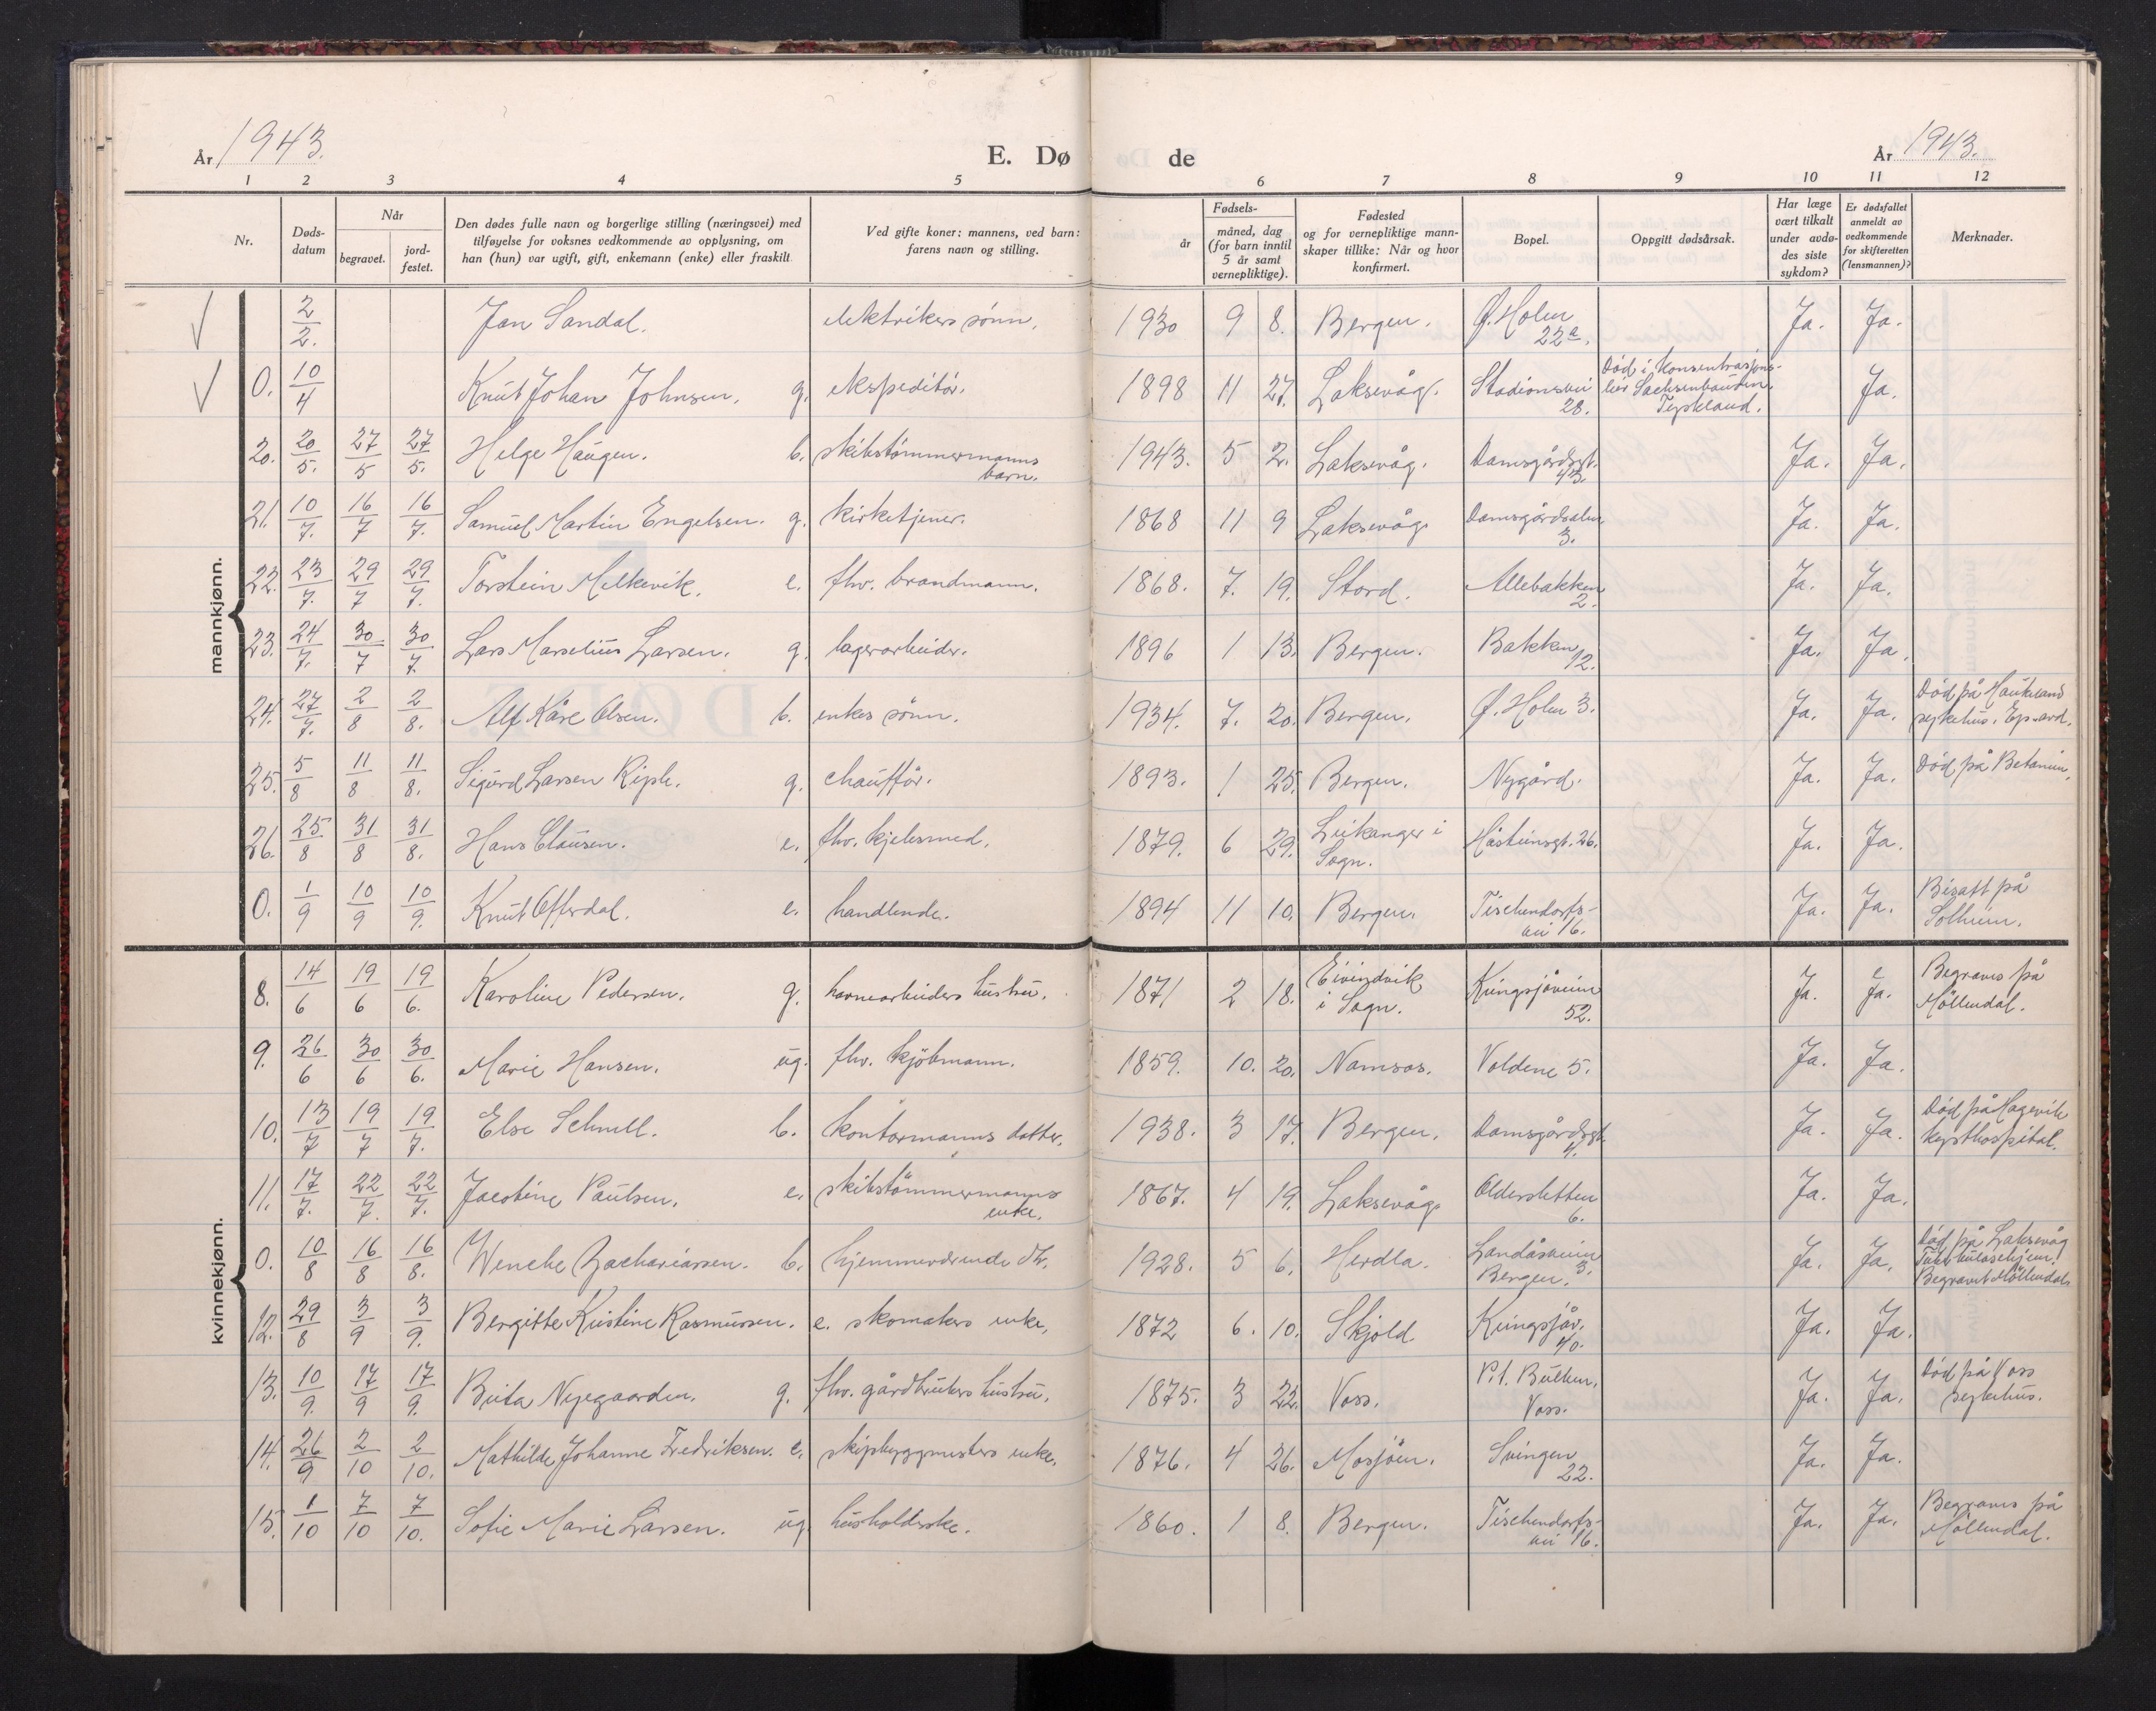 År 1943.
E. Dø de
År 1943.
1 2 3 4 5 6 7 8 9 10 11 12
Nr.
Døds-
datum
Når
begravet.
jord-
festet.
Den dødes fulle navn og borgerlige stilling (næringsvei) med
tilføyelse for voksnes vedkommende av opplysning, om
han (hun) var ugift, gift, enkemann (enke) eller fraskilt.
Ved gifte koner: mannens, ved barn:
farens navn og stilling.
år
Fødsels-
måned, dag
(for barn inntil
5 år samt
vernepliktige).
Fødested
og for vernepliktige mann-
skaper tillike: Når og hvor
konfirmert.
Bopel.
Oppgitt dødsårsak.
Har læge
vært tilkalt
under avdø-
des siste
sykdom?
Er dødsfallet
anmeldt av
vedkommende
for skifteretten
(lensmannen)?
Merknader.
mannkjønn.
2/2. Jan Sandal. elektrikers sønn. 1930 9 8. Bergen. Ø. Holen 22a. Ja. Ja.
0. 10/4 Knut Johan Johnsen. g. ekspeditør. 1898 11 27. Laksevåg. Stadionsvei 28. Død i konsentrasjons-
leir Sachsenhausen. Tyskland. Ja.
20. 20/5. 27/5 27/5. Helge Haugen. b. skibstømmermanns
barn. 1943. 5 2. Laksevåg. Damsgårdsgt. 43. Ja. Ja.
21. 10/7. 16/7 16/7. Samuel Martin Engelsen. g. kirketjener. 1868 11 9 Laksevåg. Damsgårdsalm. 3. Ja. Ja.
22. 23/7. 29/7 29/7. Torstein Melkevik. e. fhv. brandmann. 1868. 7. 19. Stord. Allebakken 2. Ja. Ja.
23. 24/7. 30/7 30/7. Lars Marselius Larsen. g. lagerarbeider. 1896 1 13. Bergen. Bakken 12. Ja. Ja.
24. 27/7. 2/8 2/8. Alf Kåre Olsen. b. enkes sønn. 1934. 7. 20. Bergen. Ø. Holen 3. Ja. Ja. Død på Haukeland
sykehus. Ep. avd.
25. 5/8 11/8 11/8. Sigurd Larsen Riple. g. chauffør. 1893. 1 25. Bergen. Nygård. Ja. Ja. Død på Betanien.
26. 25/8 31/8 31/8. Hans Clausen. e. fhv. kjelesmed. 1879. 6 29. Leikanger i
Sogn. Håsteinsgt. 26. Ja. Ja.
0. 1/9 10/9 10/9. Knut Offerdal. e. handlende. 1894 11 10. Bergen. Tischendorfs-
vei 16. Ja. Ja. Bisatt på
Solheim.
kvinnekjønn.
8. 14/6 19/6 19/6. Karoline Pedersen. g. havnearbeiders hustru. 1871 2 18. Eivindvik
i Sogn. Kringsjåveien
52. Ja. Ja. Begraves på
Møllendal.
9. 26/6 30/6 30/6. Marie Hansen. ug. fhv. kjøbmann. 1859. 10. 20. Namsos. Voldene 5. Ja. Ja.
10. 13/7 19/7 19/7. Else Schnell. b. kontormanns datter. 1938. 3 17. Bergen. Damsgårdsgt.
4. Ja. Ja. Død på Hagevik
kysthospital.
11. 17/7. 22/7. 22/7. Jacobine Paulsen. e. skibstømmermanns
enke. 1867. 4 19. Laksevåg. Oldersletten
6. Ja. Ja.
0. 10/8 16/8 16/8. Wenche Zachariassen. b. hjemmeværende dtr. 1928. 5 6. Herdla. Landåsveien 3.
Bergen. Ja. Ja. Død på Laksevåg
Tuberkulosehjem.
Begravet Møllendal.
12. 29/8 3/9 3/9. Bergitte Kristine Rasmussen. e. skomakers enke. 1872 6. 10. Skjold Kringsjåv.
40. Ja. Ja.
13. 10/9. 17/9 17/9. Brita Nyegaarden. g. fhv. gårdbrukers hustru. 1875. 3 22. Voss. P.t. Bulken.
Voss. Ja. Ja. Død på Voss
sykehus.
14. 26/9 2/10 2/10. Mathilde Johanne Fredriksen. e. skipbyggmesters enke. 1876. 4 26. Mosjøen. Svingen
22. Ja. Ja.
15. 1/10 7/10 7/10. Sofie Marie Larsen. ug. husholderske. 1860. 1 8. Bergen. Tischendorfs-
vei 16. Ja. Ja. Begraves på
Møllendal.